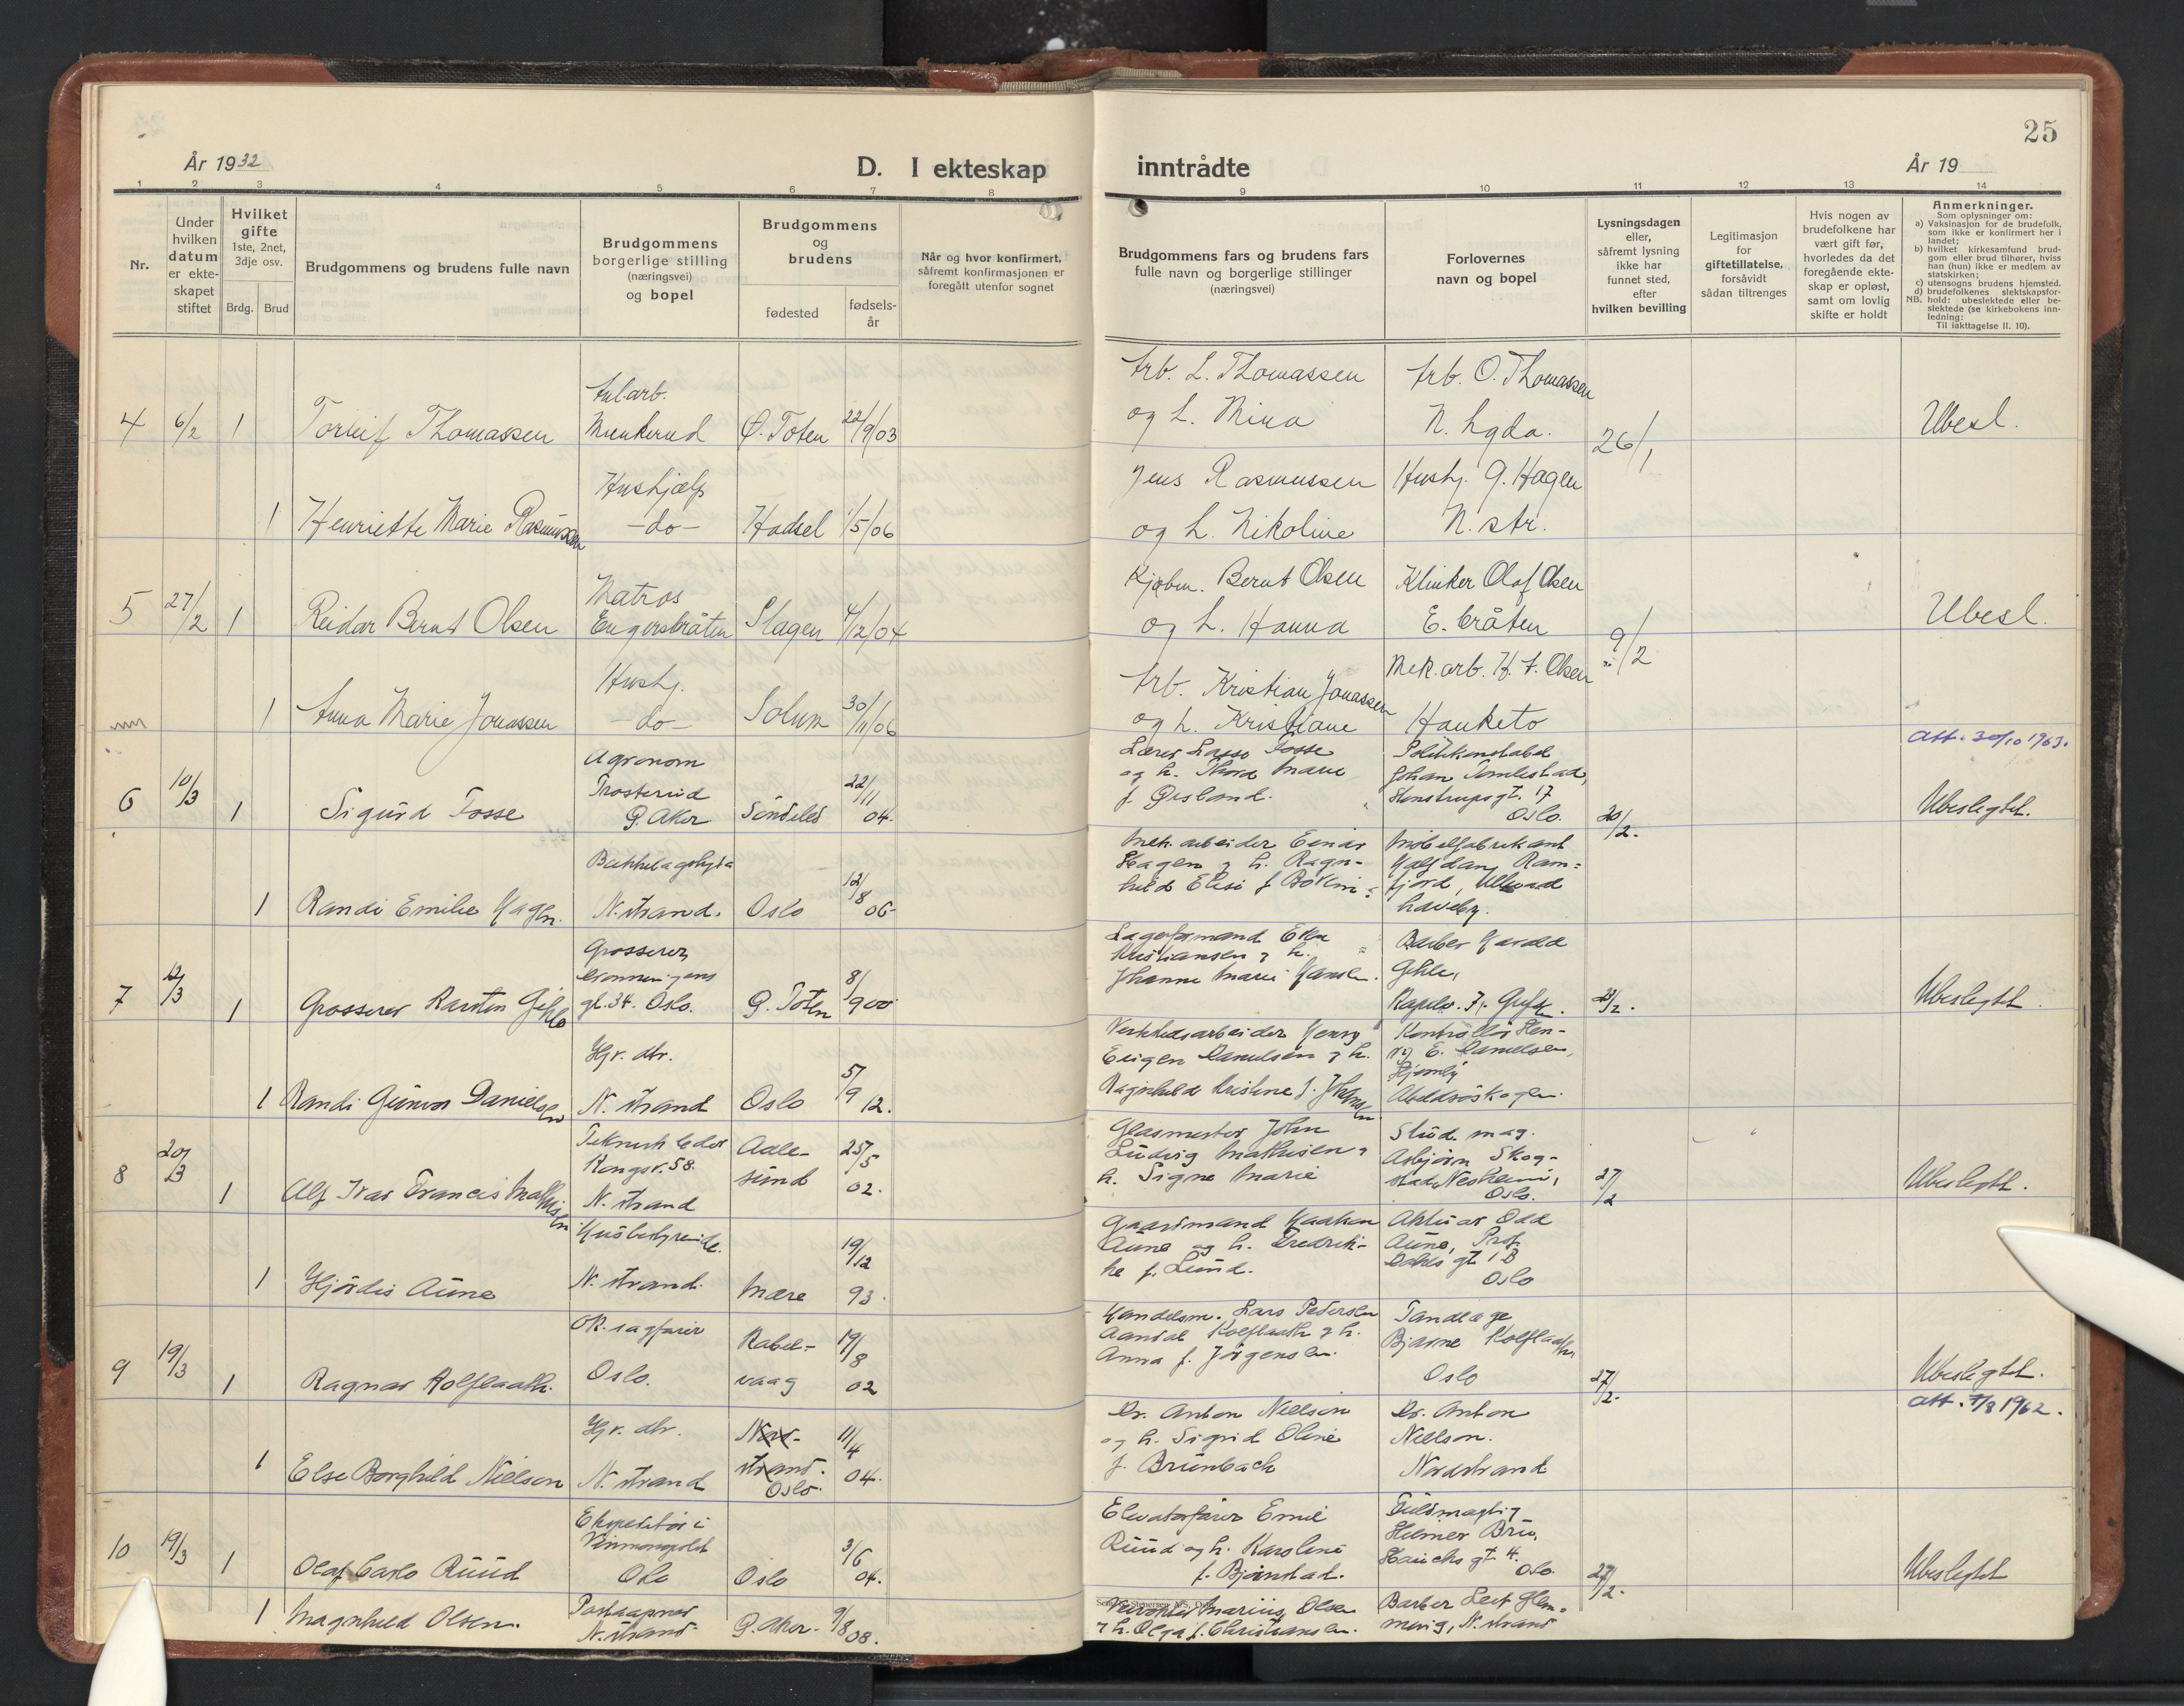 25
År 1932
D. I ekteskap
inntrådte
År 19
1 2 3 4 5 6 7 8 9 10 11 12 13 14
Nr.
Under hvilken datum er ekteskapet stiftet
Hvilket gifte
1ste, 2net, 3dje osv.
Brdg. Brud
Brudgommens og brudens fulle navn
Brudgommens borgerlige stilling (næringsvei) og bopel
Brudgommens og brudens
fødested
fødselsår
Når og hvor konfirmert, såfremt konfirmasjonen er foregått utenfor sognet
Brudgommens fars og brudens fars fulle navn og borgerlige stillinger (næringsvei)
Forlovernes navn og bopel
Lysningsdagen eller, såfremt lysning ikke har funnet sted, efter hvilken bevilling
Legitimasjon for giftetillatelse, forsåvidt sådan tiltrenges
Hvis nogen av brudefolkene har vært gift før, hvorledes da det foregående ekteskap er opløst, samt om lovlig skifte er holdt
Anmerkninger.
Som oplysninger om:
a) Vaksinasjon for de brudefolk, som ikke er konfirmert her i landet;
b) hvilket kirkesamfund brudgom eller brud tilhører, hviss han (hun) ikke er medlem av statskirken;
c) utensogns brudens hjemsted.
d) brudefolkenes slektskapsforhold: ubeslektede eller beslektede (se kirkebokens innledning:
NB. Til iakttagelse II. 10).
Arb. L. Thomassen Arb. O. Thomassen
Anl.arb.
4 6/2 1 Torleif Thomassen Munkerud Ø. Toten 22/9/03 og h. Mina N. hgda. 26/1 Ubesl.
Hushjælp Jens Rasmussen Hushj. G. Hagen
1 Henriette Marie Rasmussen -do- Hadsel 1/5/06 og h. Nikoline N.str.
Matros Kjøbm. Bernt Olsen Klinker Olaf Olsen
5 27/2 1 Reidar Bernt Olsen Engersbråten Slagen 4/12/04 og h. Hanna E.bråten 9/2 Ubesl.
Hushj. Arb. Kristian Jonassen Mek.arb. H. A. Olsen
1 Anna Marie Jonassen -do- Solum 30/11/06 og h. Kristiane Hauketo
Att. 30/10 1963.
Agronom Lærer Lasse Fosse Politikonstabel
6 10/3 1 Sigurd Fosse Trosterud Ø. Aker Søndeled 22/11 04. og h. Thora Marie f. Øisland. Johan Tomlestad, Stenstrupsgt. 17 Oslo. 20/2. Ubeslegtet.
1 Randi Emilie Hagen. Bækkelagshøgda N.strand. Oslo 12/8 06 Mek. arbeider Einar Hagen og h. Ragnhild Elise f. Møbelfabrikant Halfdan Ramfjord, Ullevaal haveby.
7 12/3 1 Grosserer Karsten Gihle Grosserer gt. 34. Oslo. Ø. Toten 8/9 00 Lagerformand Kristiansen og h. Johanne Marie Hansen. Barber Harald Gihle, 28/2. Ubeslegtet.
1 Randi Gunvor Danielsen Hjv. dtr. N. strand Oslo 5/9 12. Verkstedsarbeider Henry Eugen Danielsen og h. Ragnhild Kristine f. Johansen Kontrollør Henry E. Danielsen, Abeldsøskogen.
8 20/3 1 Alf Ivar Francis Mathisen Teknisk leder Kongsv. 58. N. strand Aalesund 25/5 02. Glasmester John Ludvig Mathisen og h. Signe Marie Stud. mag. Asbjørn Skogstad, Nesheim, Oslo. 27/2 Ubeslegtet.
1 Hjørdis Aune Husbestyrerinde. N. strand. Mære 19/12 93. Gaardmand Haakon Aune og h. Fredrikke f. Lund. Aktuar Odd Aune, Prof. Dahls gt 1 B Oslo
9 19/3 1 Ragnar Kolflaath. OR.sagfører Oslo. Kabelvaag 19/8 02 Handelsm. Lars Pedersen Aandal Kolflaath og h. Anna f. Jørgensen. Tandlæge Bjarne Kolflaath, Oslo 27/2. Ubeslegtet.
Att. 7/8 1962.
1 Else Borghild Nielsen Hjv. dtr. N. strand Nordstrand. Oslo. 11/4 04. Dr. Anton Nielsen og h. Sigrid Oline f. Brunbach Dr. Anton Nielsen. Nordstrand
10 19/3 1 Olaf Carlo Ruud Ekspeditør i Vinmonopolet Oslo Oslo 3/6 04. Elevatorfører Emil Ruud og h. Karoline f. Bjørnstad. Fuldmægtig Hilmer Bru, Hauchs gt 4. Oslo. 27/2. Ubeslegtet
1 Magnhild Olsen. Postaapner N.strand Ø. Aker 9/8 08. Marius Olsen og h. Olga f. Christiansen. Barber Leif Flemming, N.strand